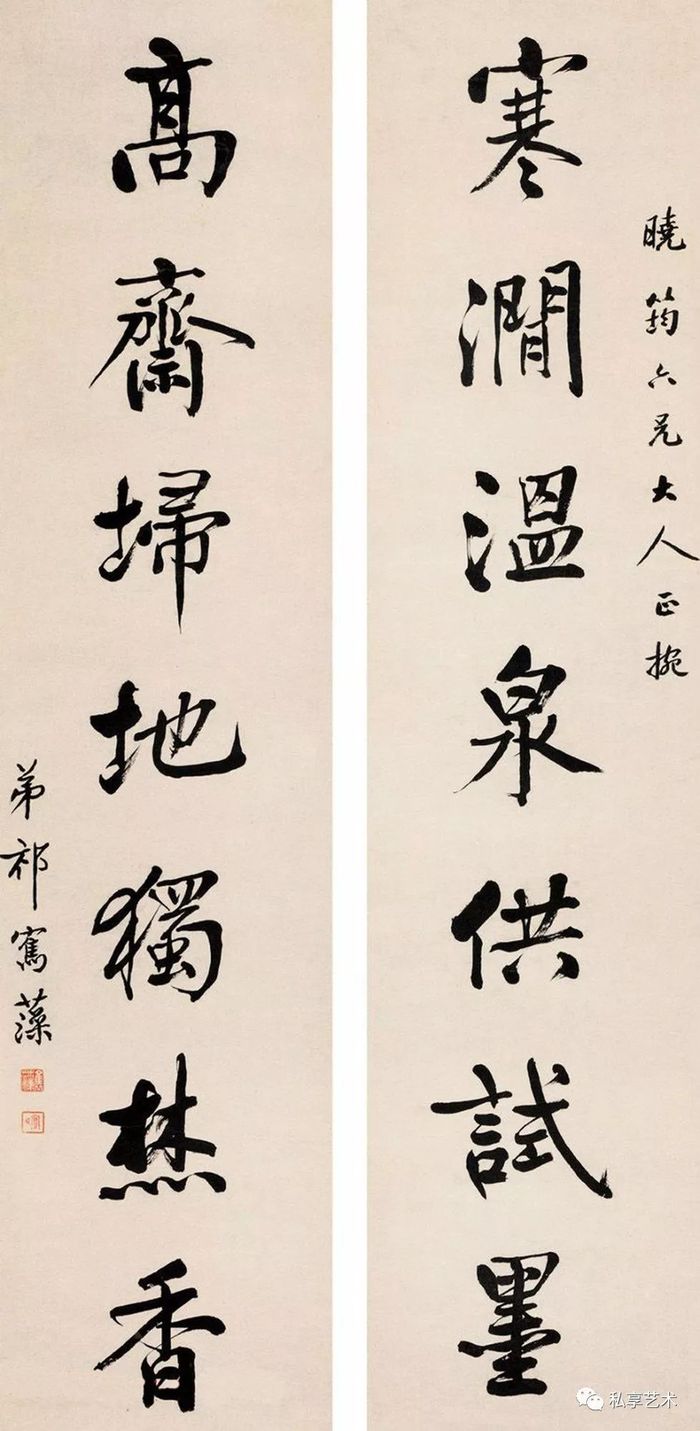 曉筠六兄大人正捥
寒澗溫泉供試墨
髙齋埽地獨焚香
弟祁寯藻
私享艺术